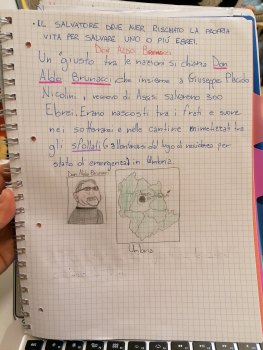 • IL SALVATORE DEVE AVER RISCHIATO LA PROPRIA
VITA PER SALVARE UNO O PIÙ EBREI.
DON ALDO BRUNACCI
Un giusto tra le nazioni si chiama Don
Aldo Brunacci che insieme a Giuseppe Placido
Nicolini, vescovo di Assisi salvarono 300
Ebrei. Erano nascosti tra i frati e suore
nei sotterranei e nelle cantine mimetizzati tra
gli sfollati (allontanare dal luogo di residenza per
stato di emergenza) in Umbria.
Don Aldo Brunacci
Umbria